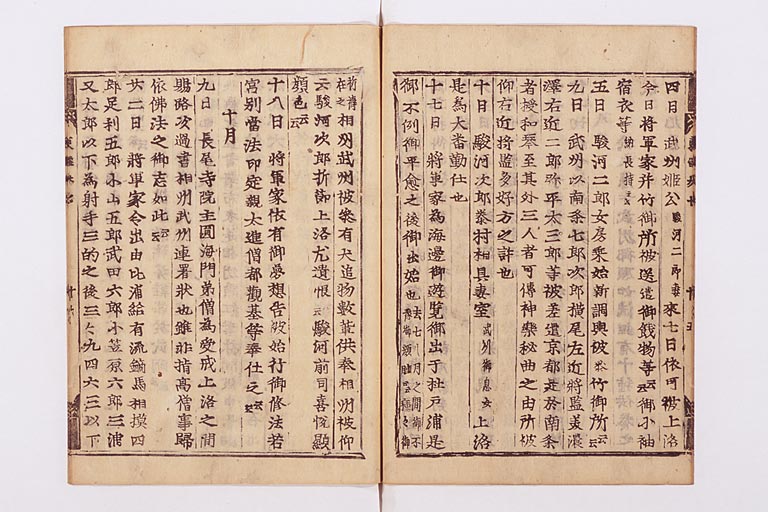 四日 武州姫公駿河二郎妻來七日依可被上洛
今日將軍家并竹御所被送遣御餞物等云云御小袖
宿衣等納長持
五日 駿河二郎女房乗始新調輿被參竹御所云云
九日 武州以南条七郎次郎横尾左近將監美濃
澤右近二郎弥平太三郎等被差遣京都是於南条
者授和琴至其外三人者可傳神樂秘曲之由所被
仰右近將監多好方之許也
十日 駿河次郎泰村相具妻室武州御息女上洛
是為大番勤仕也
十七日 將軍家為海邊御遊覧御出于杜戸浦是
御不例御平愈之後御出始也去七八月之間御不
在之相州武州被參有犬追物數輩供奉相州被仰
云駿河次郎折節上洛尤遺恨云云駿河前司喜悦顯
顔色云云
十八日 將軍家依有御夢想告被始行御修法若
宮別當法印定親大進僧都觀基等奉仕之云云
十月
九日 長尾寺院主圓海門弟僧為受戒上洛之間
賜路次過書相州武州連署狀也雖非指高僧事歸
依佛法之御志如此云云
廿二日 將軍家令出由比浦給有流鏑馬相摸四
郎足利五郎小山五郎武田六郎小笠原六郎三浦
又太郎以下為射手三的之後三々九四六三以下